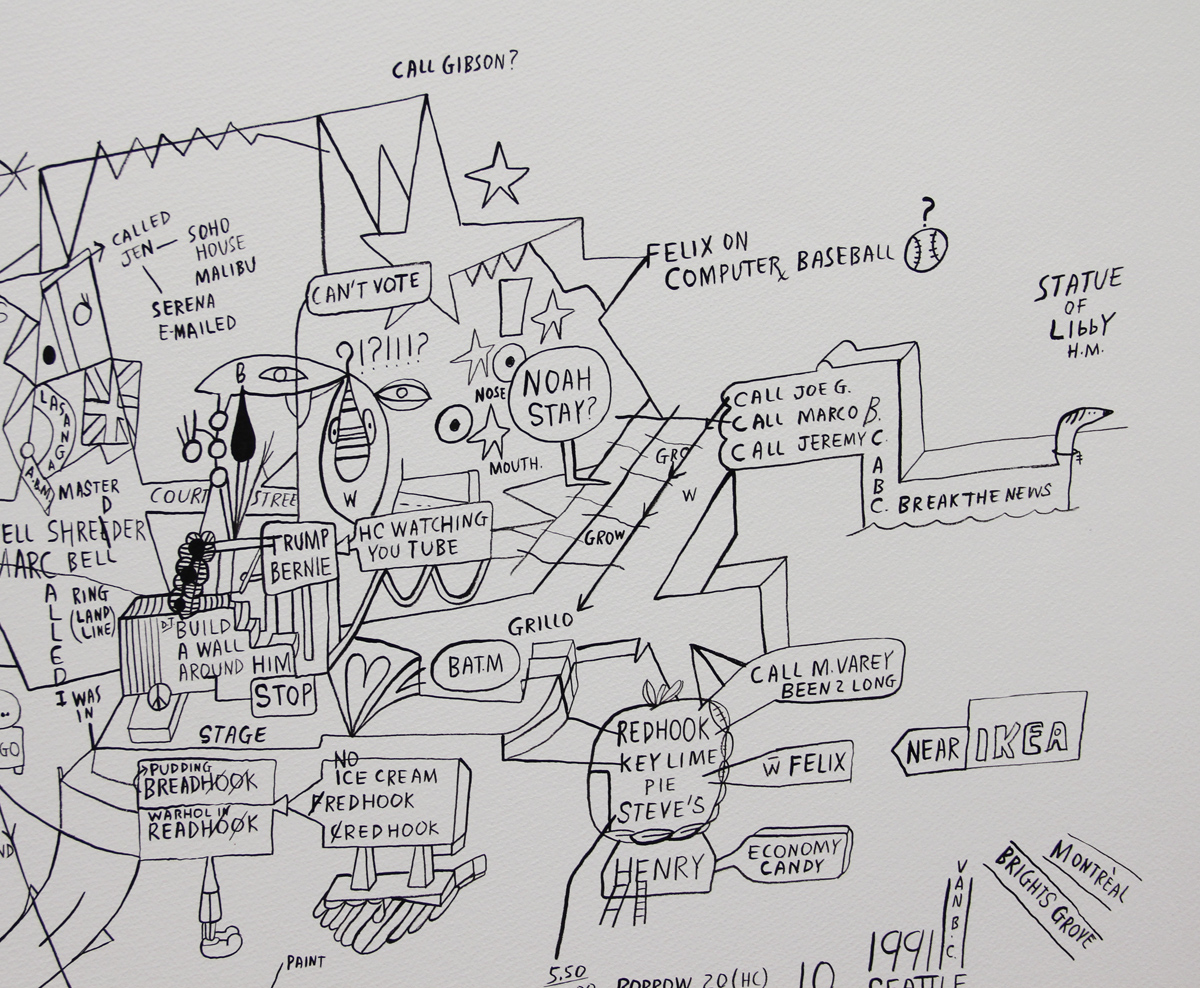 CALL GIBSON?
CALLED
JEN — SOHO
HOUSE
MALIBU
SERENA
E-MAILED
CAN'T VOTE
?!?!!!?
FELIX ON
COMPUTER BASEBALL
?
STATUE
OF
LIBBY
H.M.
B
NOSE
NOAH
STAY?
MOUTH.
W
LASANGA
A.B.M
MASTER
D
ELL SHREDDER
MARC BELL
COURT STREE
TRUMP
BERNIE
HC WATCHING
YOU TUBE
GRO
W
GROW
GRILLO
CALL JOE G.
CALL MARCO B.
CALL JEREMY C.
A
B
C. BREAK THE NEWS
A
L
L
E
D
RING
(LAND
LINE)
I WAS
IN
DJ BUILD
A WALL
AROUND HIM
STOP
STAGE
BAT.M
CALL M.VAREY
BEEN 2 LONG
REDHOOK
KEY LIME
PIE
STEVE'S
W̄ FELIX
NEAR IKEA
HENRY
ECONOMY
CANDY
GO
PUDDING
BREADHOOK
WARHOL IN
READHOOK
NO
ICE CREAM
FREDHOOK
CREDHOOK
ND
PAINT
5.50
BORROW 20(HC)
10
1991
SEATTLE
VAN B.C.
MONTRÈAL
BRIGHTS GROVE